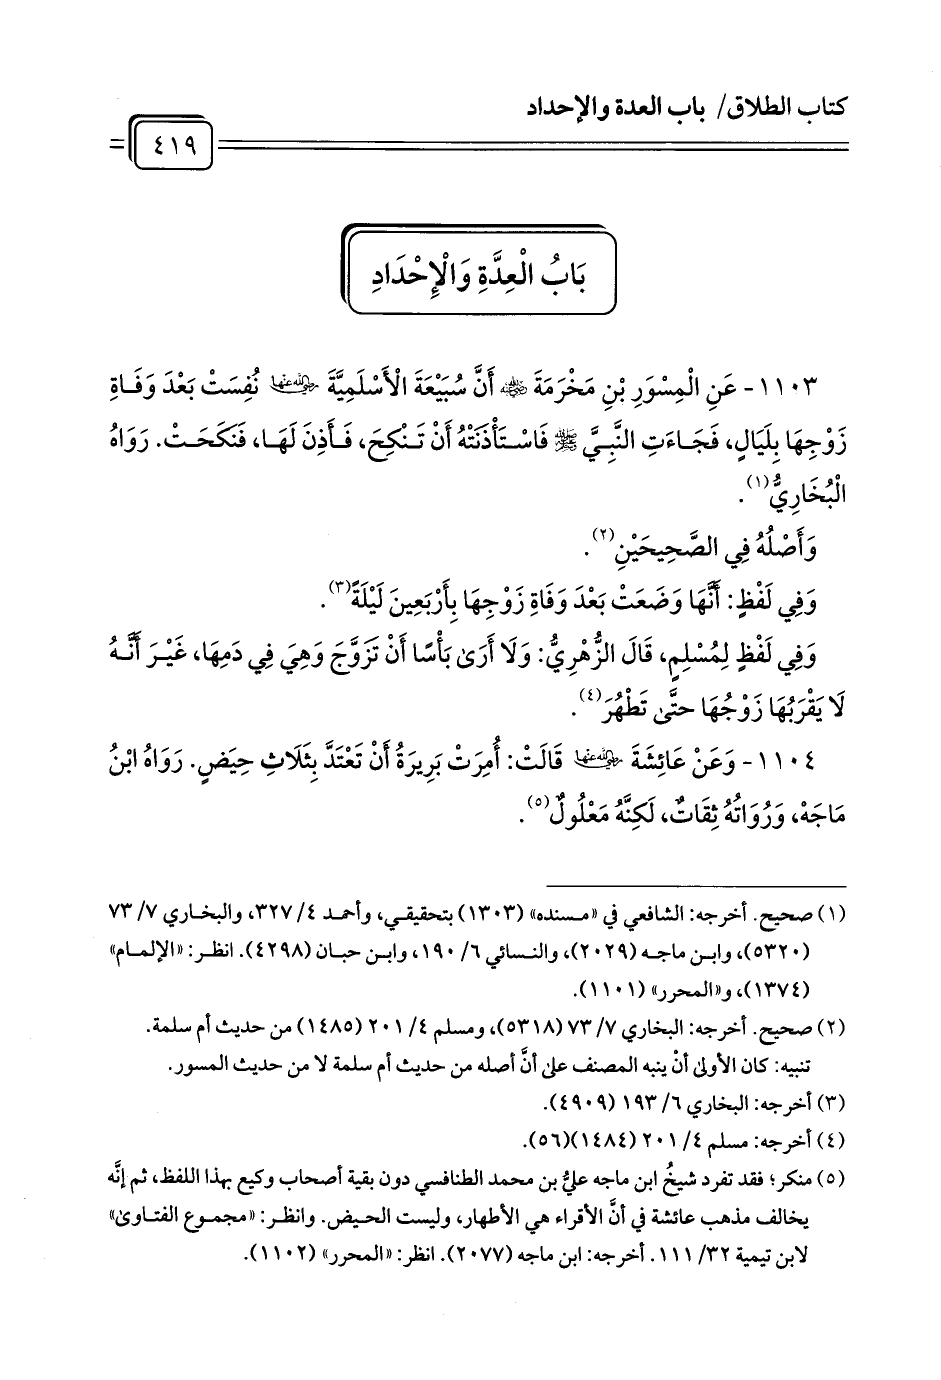 كتاب الطلاق/ باب العدة والإحداد
٤١٩
بَابُ الْعِدَّةِ وَالْإِحْدَادِ
١١٠٣- عَنِ الْمِسْوَرِ بْنِ مَخْرَمَةَ ﵁ أَنَّ سُبَيْعَةَ الْأَسْلَمِيَّةَ ﵂ نُفِسَتْ بَعْدَ وَفَاةِ
زَوْجِهَا بِلَيَالٍ، فَجَاءَتِ النَّبِيَّ ﷺ فَاسْتَأْذَنَتْهُ أَنْ تَنْكِحَ، فَأَذِنَ لَهَا، فَنَكَحَتْ. رَوَاهُ
الْبُخَارِيُّ(١).
وَأَصْلُهُ فِي الصَّحِيحَيْنِ(٢).
وَفِي لَفْظٍ: أَنَّهَا وَضَعَتْ بَعْدَ وَفَاةِ زَوْجِهَا بِأَرْبَعِينَ لَيْلَةً(٣).
وَفِي لَفْظٍ لِمُسْلِمٍ، قَالَ الزُّهْرِيُّ: وَلَا أَرَىٰ بَأْسًا أَنْ تَزَوَّجَ وَهِيَ فِي دَمِهَا، غَيْرَ أَنَّهُ
لَا يَقْرَبُهَا زَوْجُهَا حتَّىٰ تَطْهُرَ(٤).
١١٠٤- وَعَنْ عَائِشَةَ ﵂ قَالَتْ: أُمِرَتْ بَرِيرَةُ أَنْ تَعْتَدَّ بِثَلَاثِ حِيَضٍ. رَوَاهُ ابْنُ
مَاجَهْ، وَرُوَاتُهُ ثِقَاتٌ، لَكِنَّهُ مَعْلُولٌ(٥).
(١) صحيح. أخرجه: الشافعي في «مسنده» (١٣٠٣) بتحقيقي، وأحمد ٤/ ٣٢٧، والبخاري ٧/ ٧٣
(٥٣٢٠)، وابن ماجه (٢٠٢٩)، والنسائي ٦/ ١٩٠، وابن حبان (٤٢٩٨). انظر: «الإلمام»
(١٣٧٤)، و«المحرر» (١١٠١).
(٢) صحيح. أخرجه: البخاري ٧/ ٧٣ (٥٣١٨)، ومسلم ٤/ ٢٠١ (١٤٨٥) من حديث أم سلمة.
تنبيه: كان الأولىٰ أنْ ينبه المصنف علىٰ أنَّ أصله من حديث أم سلمة لا من حديث المسور.
(٣) أخرجه: البخاري ٦/ ١٩٣ (٤٩٠٩).
(٤) أخرجه: مسلم ٤/ ٢٠١ (١٤٨٤)(٥٦).
(٥) منكر؛ فقد تفرد شيخُ ابن ماجه عليُّ بن محمد الطنافسي دون بقية أصحاب وكيع بهذا اللفظ، ثم إنَّه
يخالف مذهب عائشة في أنَّ الأقراء هي الأطهار، وليست الحيض. وانظر: «مجموع الفتاوىٰ»
لابن تيمية ٣٢/ ١١١. أخرجه: ابن ماجه (٢٠٧٧). انظر: «المحرر» (١١٠٢).